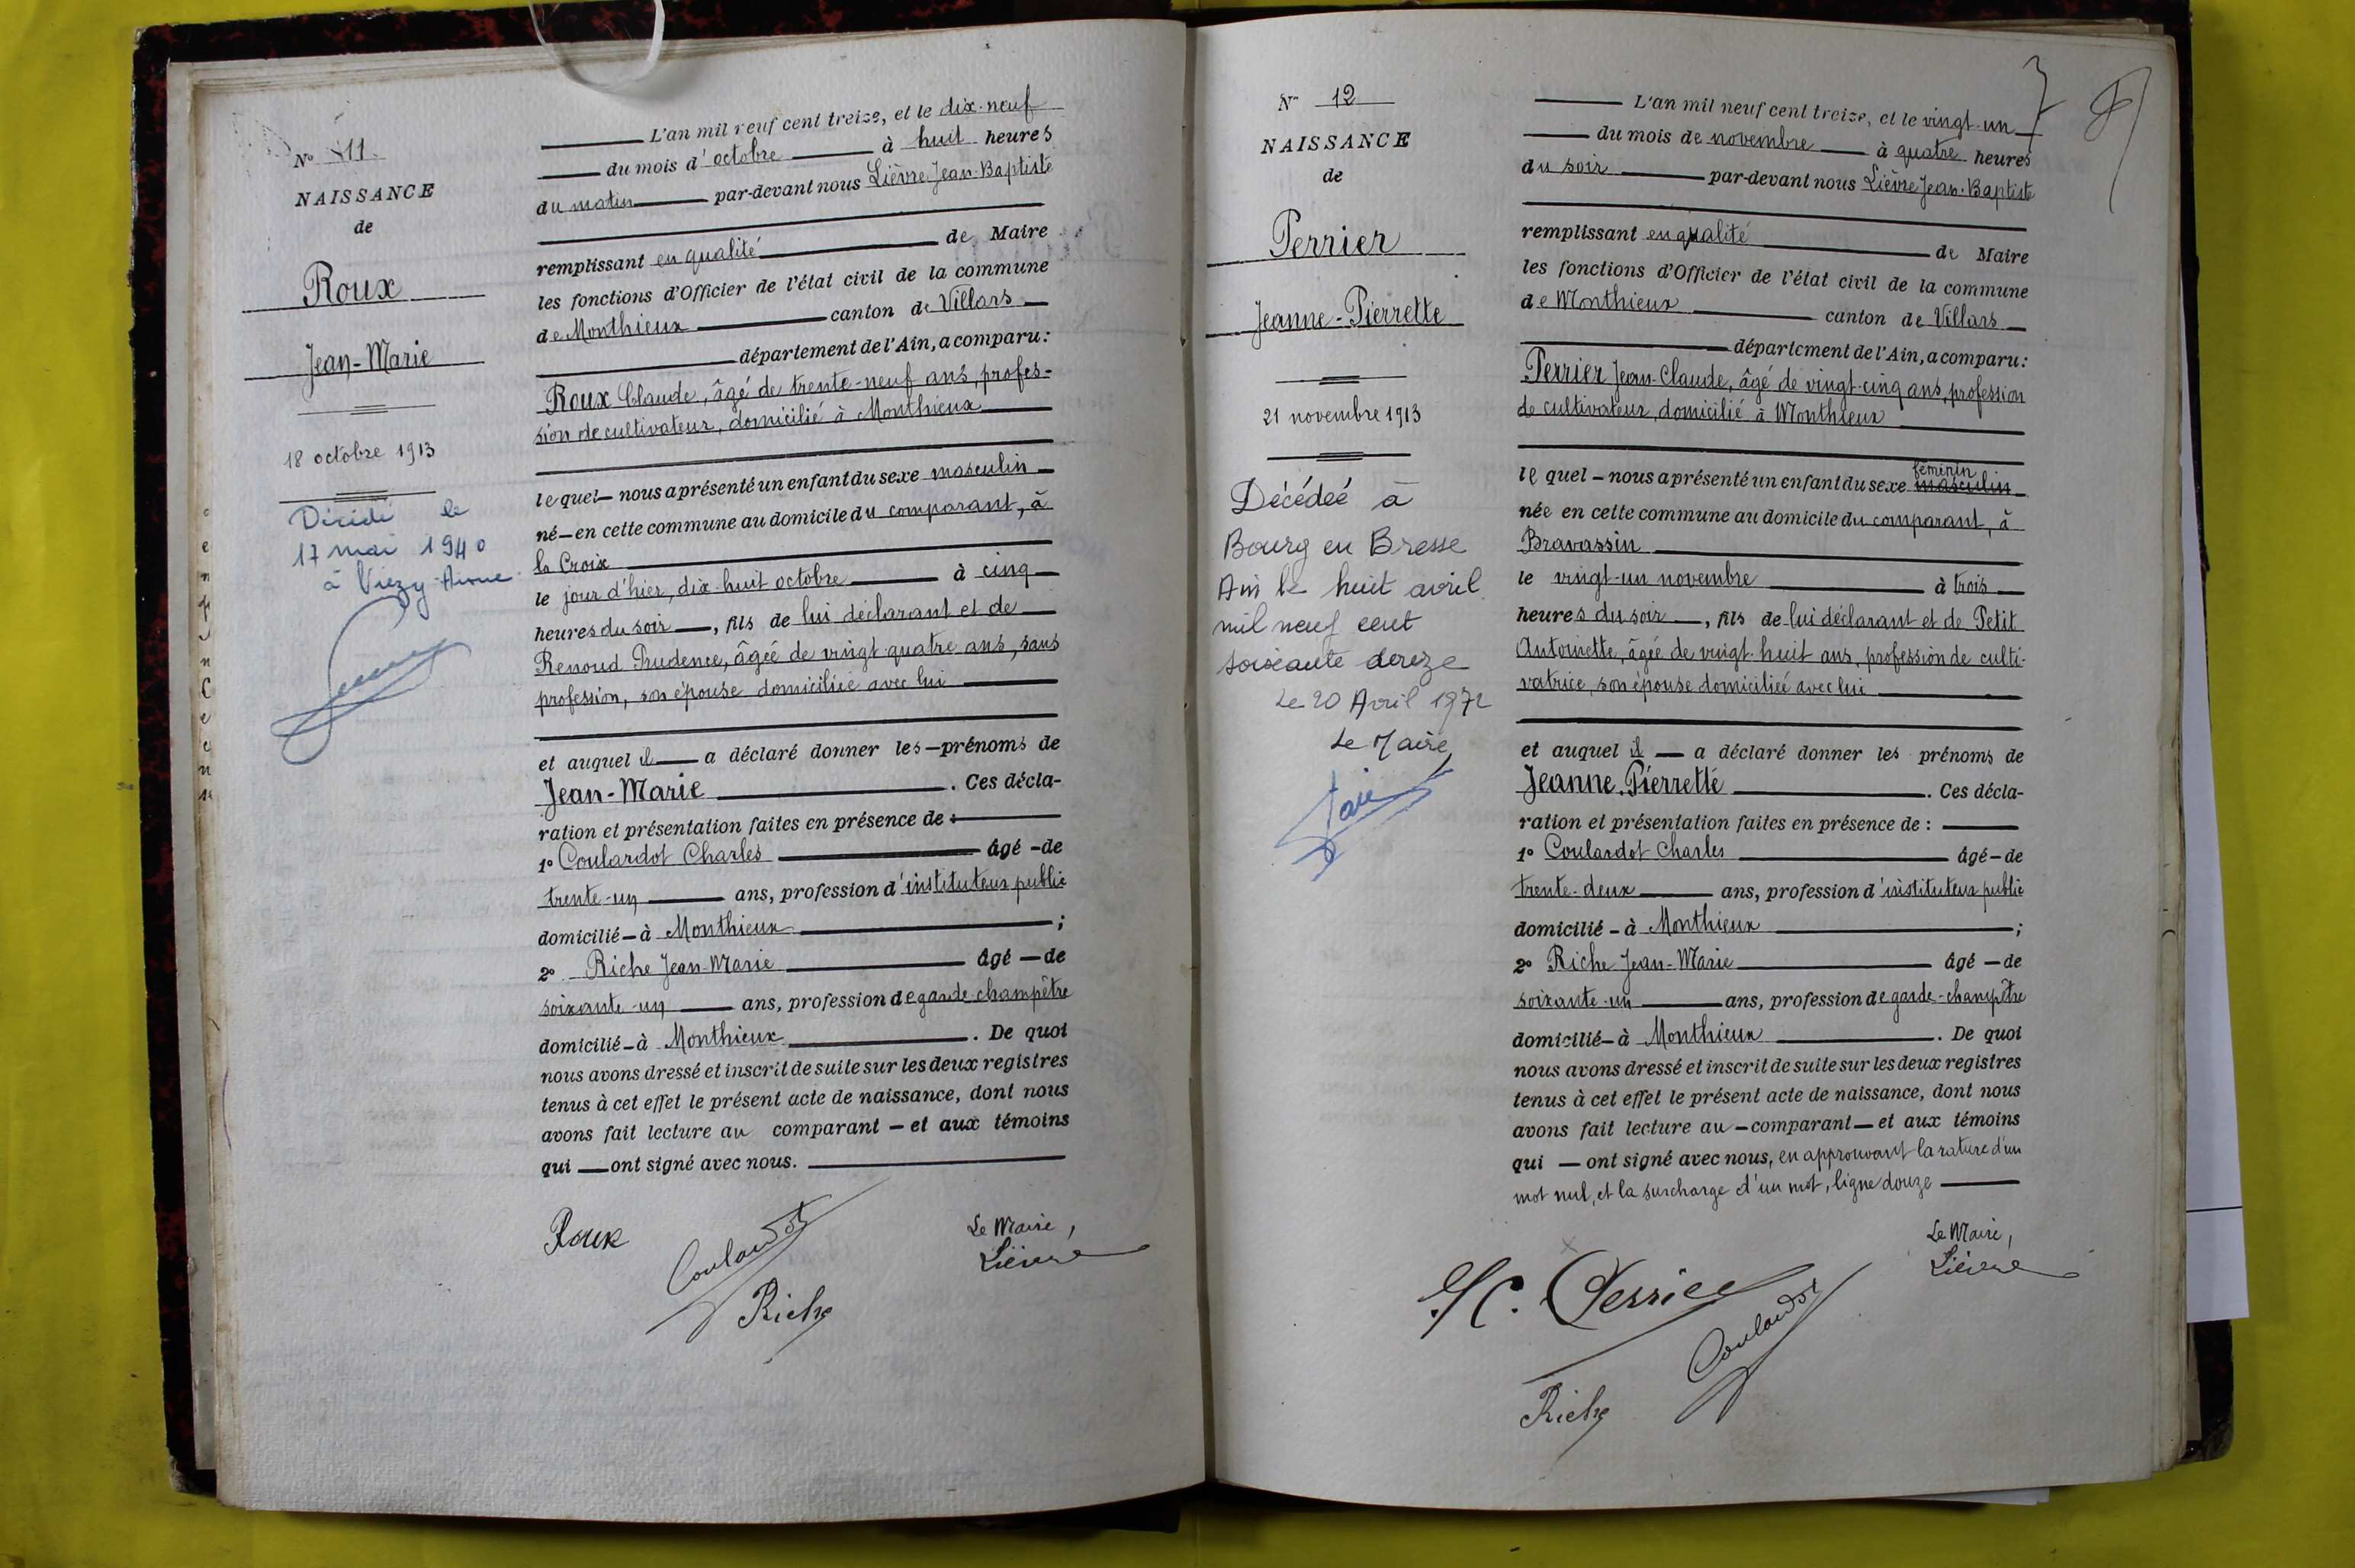 N° 11
NAISSANCE
de
Roux
Jean-Marie
18 octobre 1913
Décédé le
17 mai 1940
à Vierzy-Aisne
L'an mil neuf cent treize, et le dix-neuf
du mois d'octobre à huit heures
du matin par-devant nous Lièvre Jean-Baptiste
remplissant en qualité de Maire
les fonctions d'Officier de l'état civil de la commune
de Monthieux canton de Villars
département de l'Ain, a comparu:
Roux Claude, âgé de trente-neuf ans, profes-
sion de cultivateur, domicilié à Monthieux
lequel nous a présenté un enfant du sexe masculin
né en cette commune au domicile du comparant, à
la Croix
le jour d'hier, dix-huit octobre à cinq
heures du soir, fils de lui déclarant et de
Renoud Prudence, âgée de vingt-quatre ans, sans
profession, son épouse domiciliée avec lui
et auquel il a déclaré donner les prénoms de
Jean-Marie. Ces décla-
ration et présentation faites en présence de :
1° Coulardot Charles âgé de
trente-un ans, profession d'instituteur public
domicilié à Monthieux ;
2° Riche Jean-Marie âgé de
soixante-un ans, profession de garde-champêtre
domicilié à Monthieux. De quoi
nous avons dressé et inscrit de suite sur les deux registres
tenus à cet effet le présent acte de naissance, dont nous
avons fait lecture au comparant et aux témoins
qui ont signé avec nous.
Roux
Coulardot
Riche
Le Maire,
Lièvre
N° 12
NAISSANCE
de
Perrier
Jeanne-Pierrette
21 novembre 1913
Décédeé à
Bourg en Bresse
Ain le huit avril
mil neuf cent
soixante douze
Le 20 Avril 1972
Le Maire,
L'an mil neuf cent treize, et le vingt-un
du mois de novembre à quatre heures
du soir par-devant nous Lièvre Jean-Baptiste
remplissant en qualité de Maire
les fonctions d'Officier de l'état civil de la commune
de Monthieux canton de Villars
département de l'Ain, a comparu:
Perrier Jean-Claude, âgé de vingt-cinq ans, profession
de cultivateur, domicilié à Monthieux
féminin
lequel nous a présenté un enfant du sexe masculin
née en cette commune au domicile du comparant, à
Bravassin
le vingt-un novembre à trois
heures du soir, fils de lui déclarant et de Petit
Antoinette, âgée de vingt-huit ans, profession de culti-
vatrice, son épouse domiciliée avec lui
et auquel il a déclaré donner les prénoms de
Jeanne-Pierrette. Ces décla-
ration et présentation faites en présence de :
1° Coulardot Charles âgé de
trente-deux ans, profession d'instituteur public
domicilié à Monthieux ;
2° Riche Jean-Marie âgé de
soixante-un ans, profession de garde-champêtre
domicilié à Monthieux. De quoi
nous avons dressé et inscrit de suite sur les deux registres
tenus à cet effet le présent acte de naissance, dont nous
avons fait lecture au comparant et aux témoins
qui ont signé avec nous, en approuvant la rature d'un
mot nul, et la surcharge d'un mot, ligne douze
Le Maire,
Lièvre
J C. Perrier
Coulardot
Riche